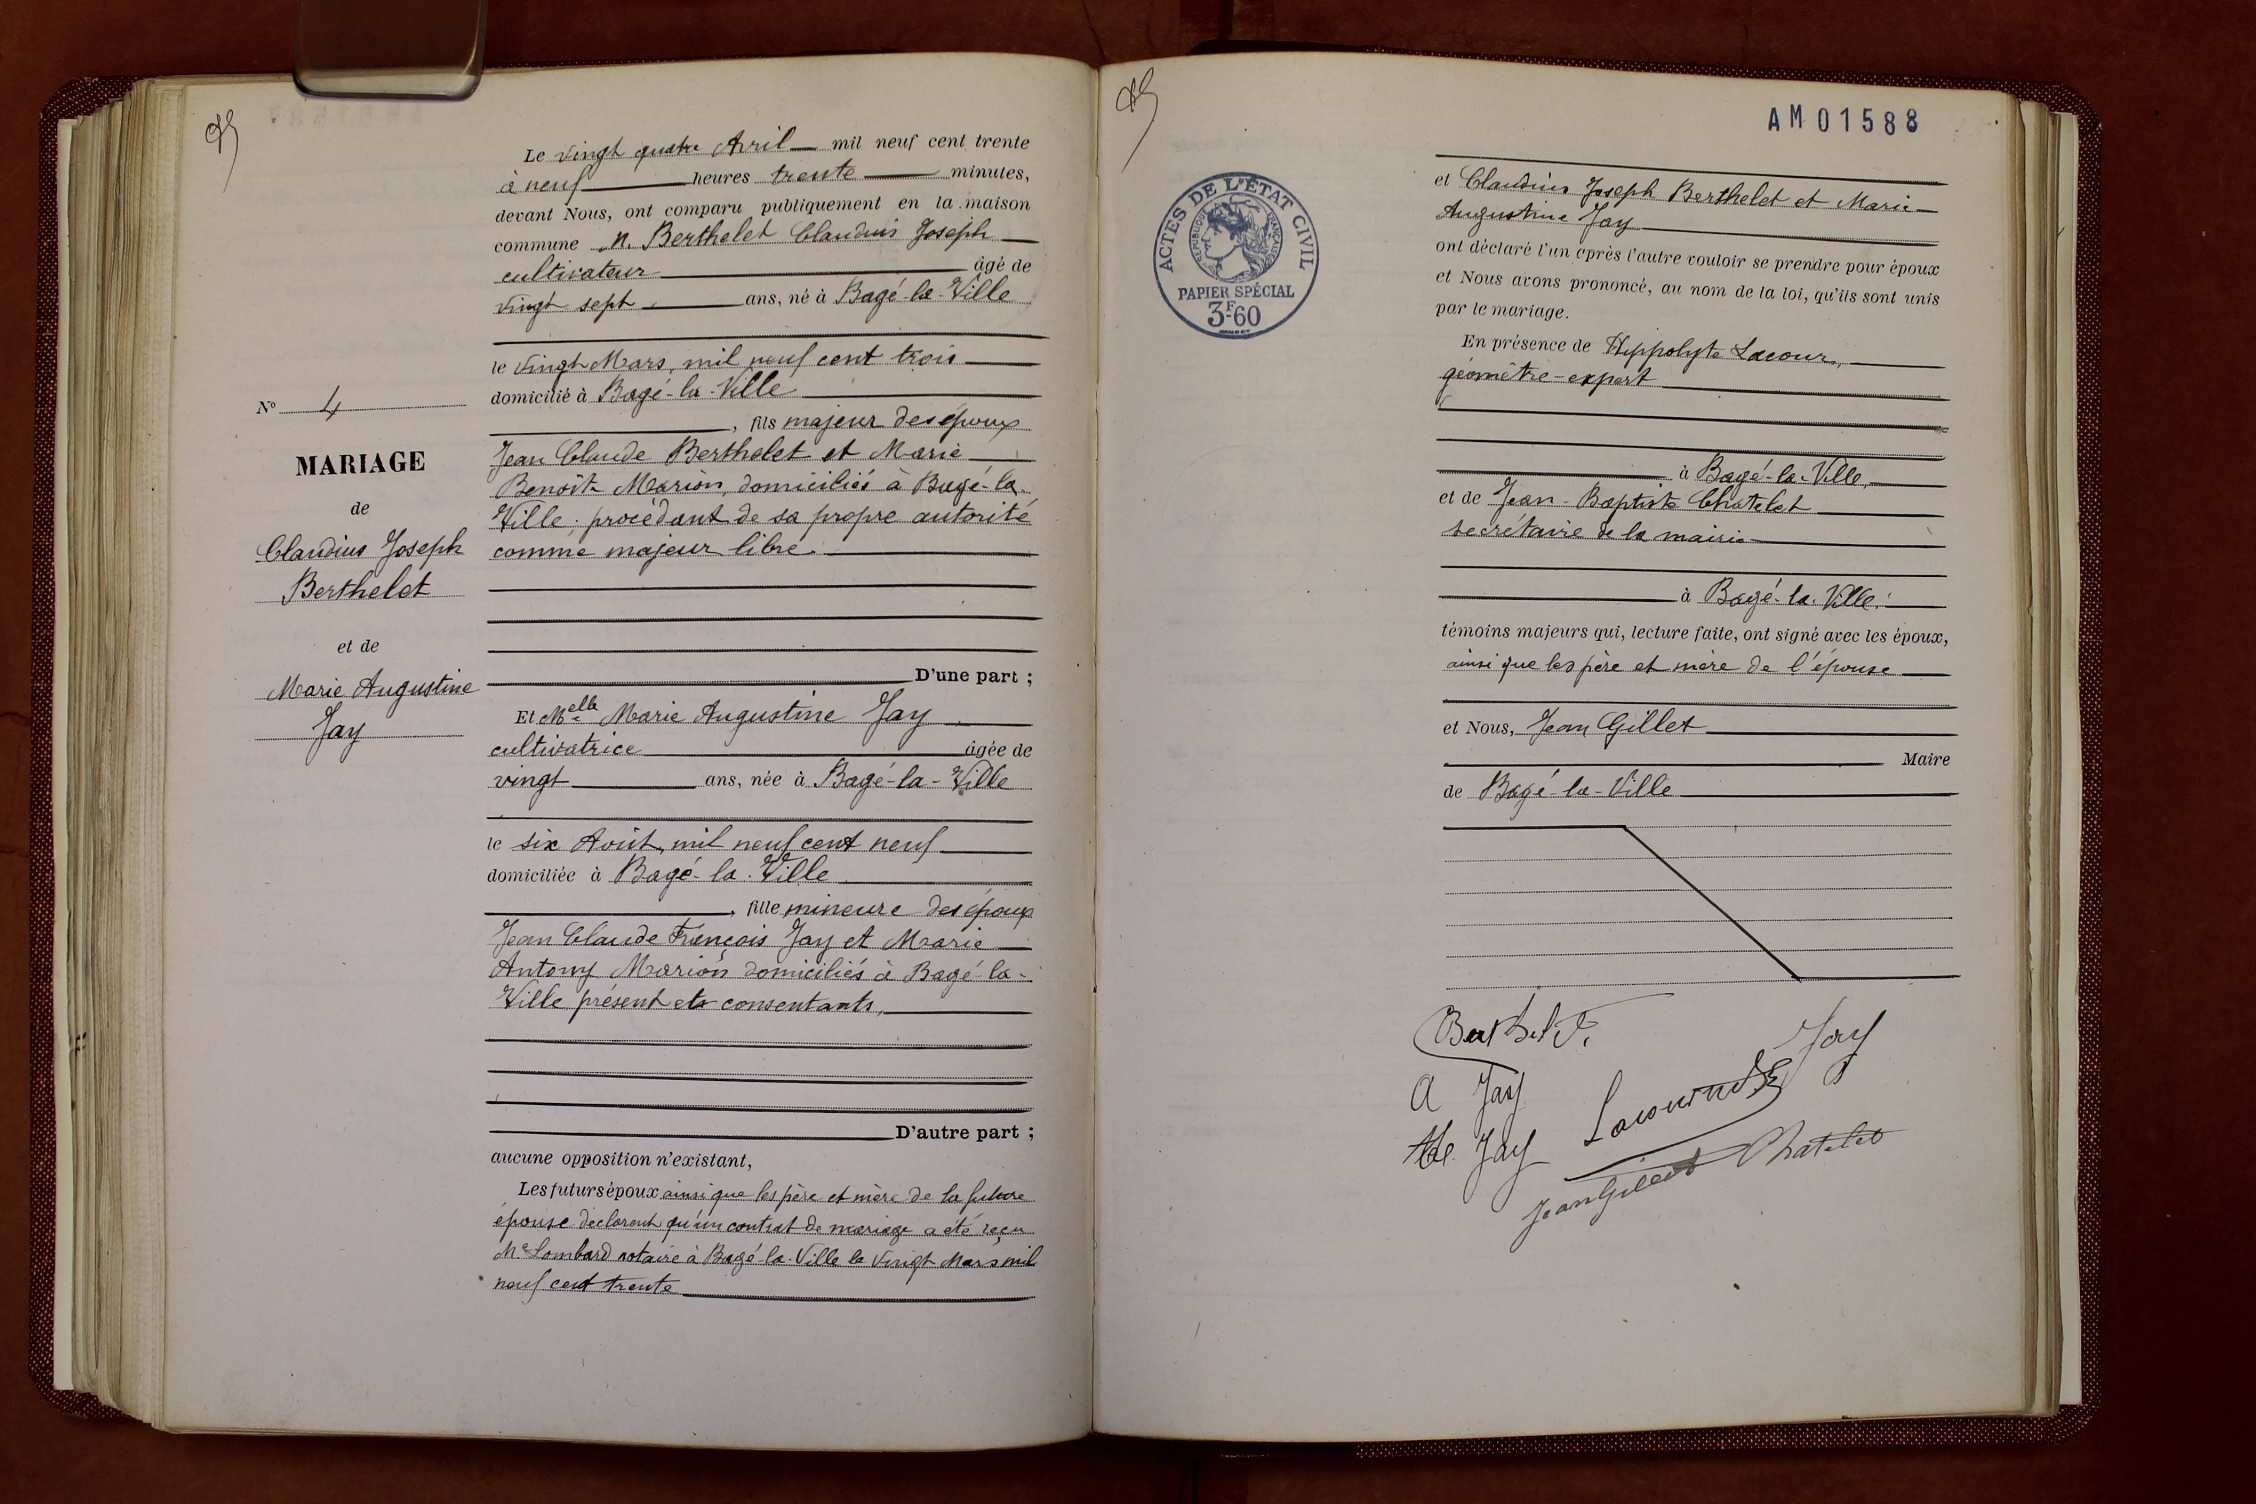 Nº 4
MARIAGE
de
Claudius Joseph
Berthelet
et de
Marie Augustine
Jay
Le vingt quatre Avril mil neuf cent trente
à neuf heures trente minutes,
devant Nous, ont comparu publiquement en la maison
commune M. Berthelet Claudius Joseph
cultivateur âgé de
vingt sept ans, né à Bagé-la-Ville
le vingt Mars, mil neuf cent trois
domicilié à Bagé-la-Ville
, fils majeur des époux
Jean Claude Berthelet et Marie
Benoîte Marion, domiciliés à Bagé-la-
Ville. procédant de sa propre autorité
comme majeur libre.
D'une part ;
Et Melle Marie Augustine Jay
cultivatrice âgée de
vingt ans, née à Bagé-la-Ville
le six Août, mil neuf cent neuf
domiciliée à Bagé-la-Ville
, fille mineure des époux
Jean Claude François Jay et Marie
Antony Marion domiciliés à Bagé-la-
Ville présent et consentants,
D'autre part ;
aucune opposition n'existant,
Les futurs époux ainsi que les père et mère de la future
épouse déclarent qu'un contrat de mariage a été reçu
Me Lombard notaire à Bagé-la-Ville le vingt Mars mil
neuf cent trente
AM01588
ACTES DE L'ÉTAT CIVIL
RÉPUBLIQUE FRANÇAISE
PAPIER SPÉCIAL
3F60
et Claudius Joseph Berthelet et Marie
Augustine Jay
ont déclaré l'un après l'autre vouloir se prendre pour époux
et Nous avons prononcé, au nom de la loi, qu'ils sont unis
par le mariage.
En présence de Hippolyte Lacour,
géomètre-expert
à Bagé-la-Ville,
et de Jean-Baptiste Chatelet
secrétaire de la mairie
à Bagé-la-Ville.
témoins majeurs qui, lecture faite, ont signé avec les époux,
ainsi que les père et mère de l'épouse
et Nous, Jean Gillet
Maire
de Bagé-la-Ville
Berthelet
Jay
A Jay
Jay
Chatelet
Jean Gillet